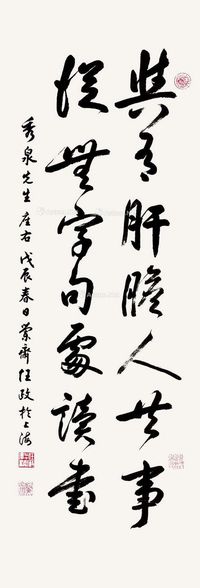 與有肝膽人共事
從無字句處讀書
秀泉先生座右 戊辰春日 蘭齋任政於上海